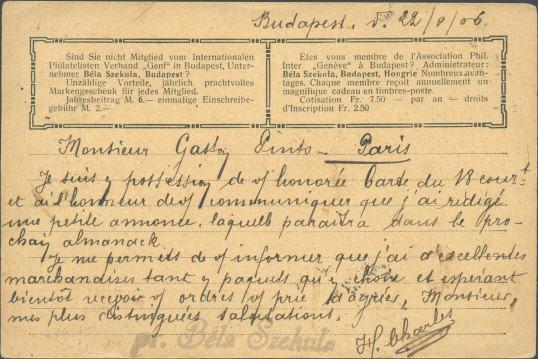 Budapest, d. 22/8/06
Sind Sie nicht Mitglied vom Internationalen
Philatelisten Verband „Genf" in Budapest, Unter-
nehmer Béla Szekula, Budapest?
Unzählige Vorteile, jährlich prachtvolles
Markengeschenk für jedes Mitglied.
Jahresbeitrag M. 6.— einmalige Einschreibe-
gebühr M. 2.—
Etes vous membre de l'Association Phil.
Inter. „Genève" à Budapest? Administrateur:
Béla Szekula, Budapest, Hongrie Nombreux avan-
tages. Chaque membre reçoit annuellement un
magnifique cadeau en timbres-poste.
Cotisation Fr. 7.50 — par an — droits
d'Inscription Fr. 2.50
Monsieur Gaston Pinto - Paris
Je suis y possession de v/ honorée Carte du 18 court
et ai l'honneur de v/ communiquer que j'ai rédigé
une petite annonce, laquelle paraîtra dans le pro-
chain almanack
Je me permets de v/ informer que j'ai d'excellentes
marchandises tant y paquets qu'y choix et espérant
bientôt recevoir v/ ordres v/ prie d'agréer, Monsieur,
mes plus distinguées salutations.
pr. Béla Szekula
H. Charles